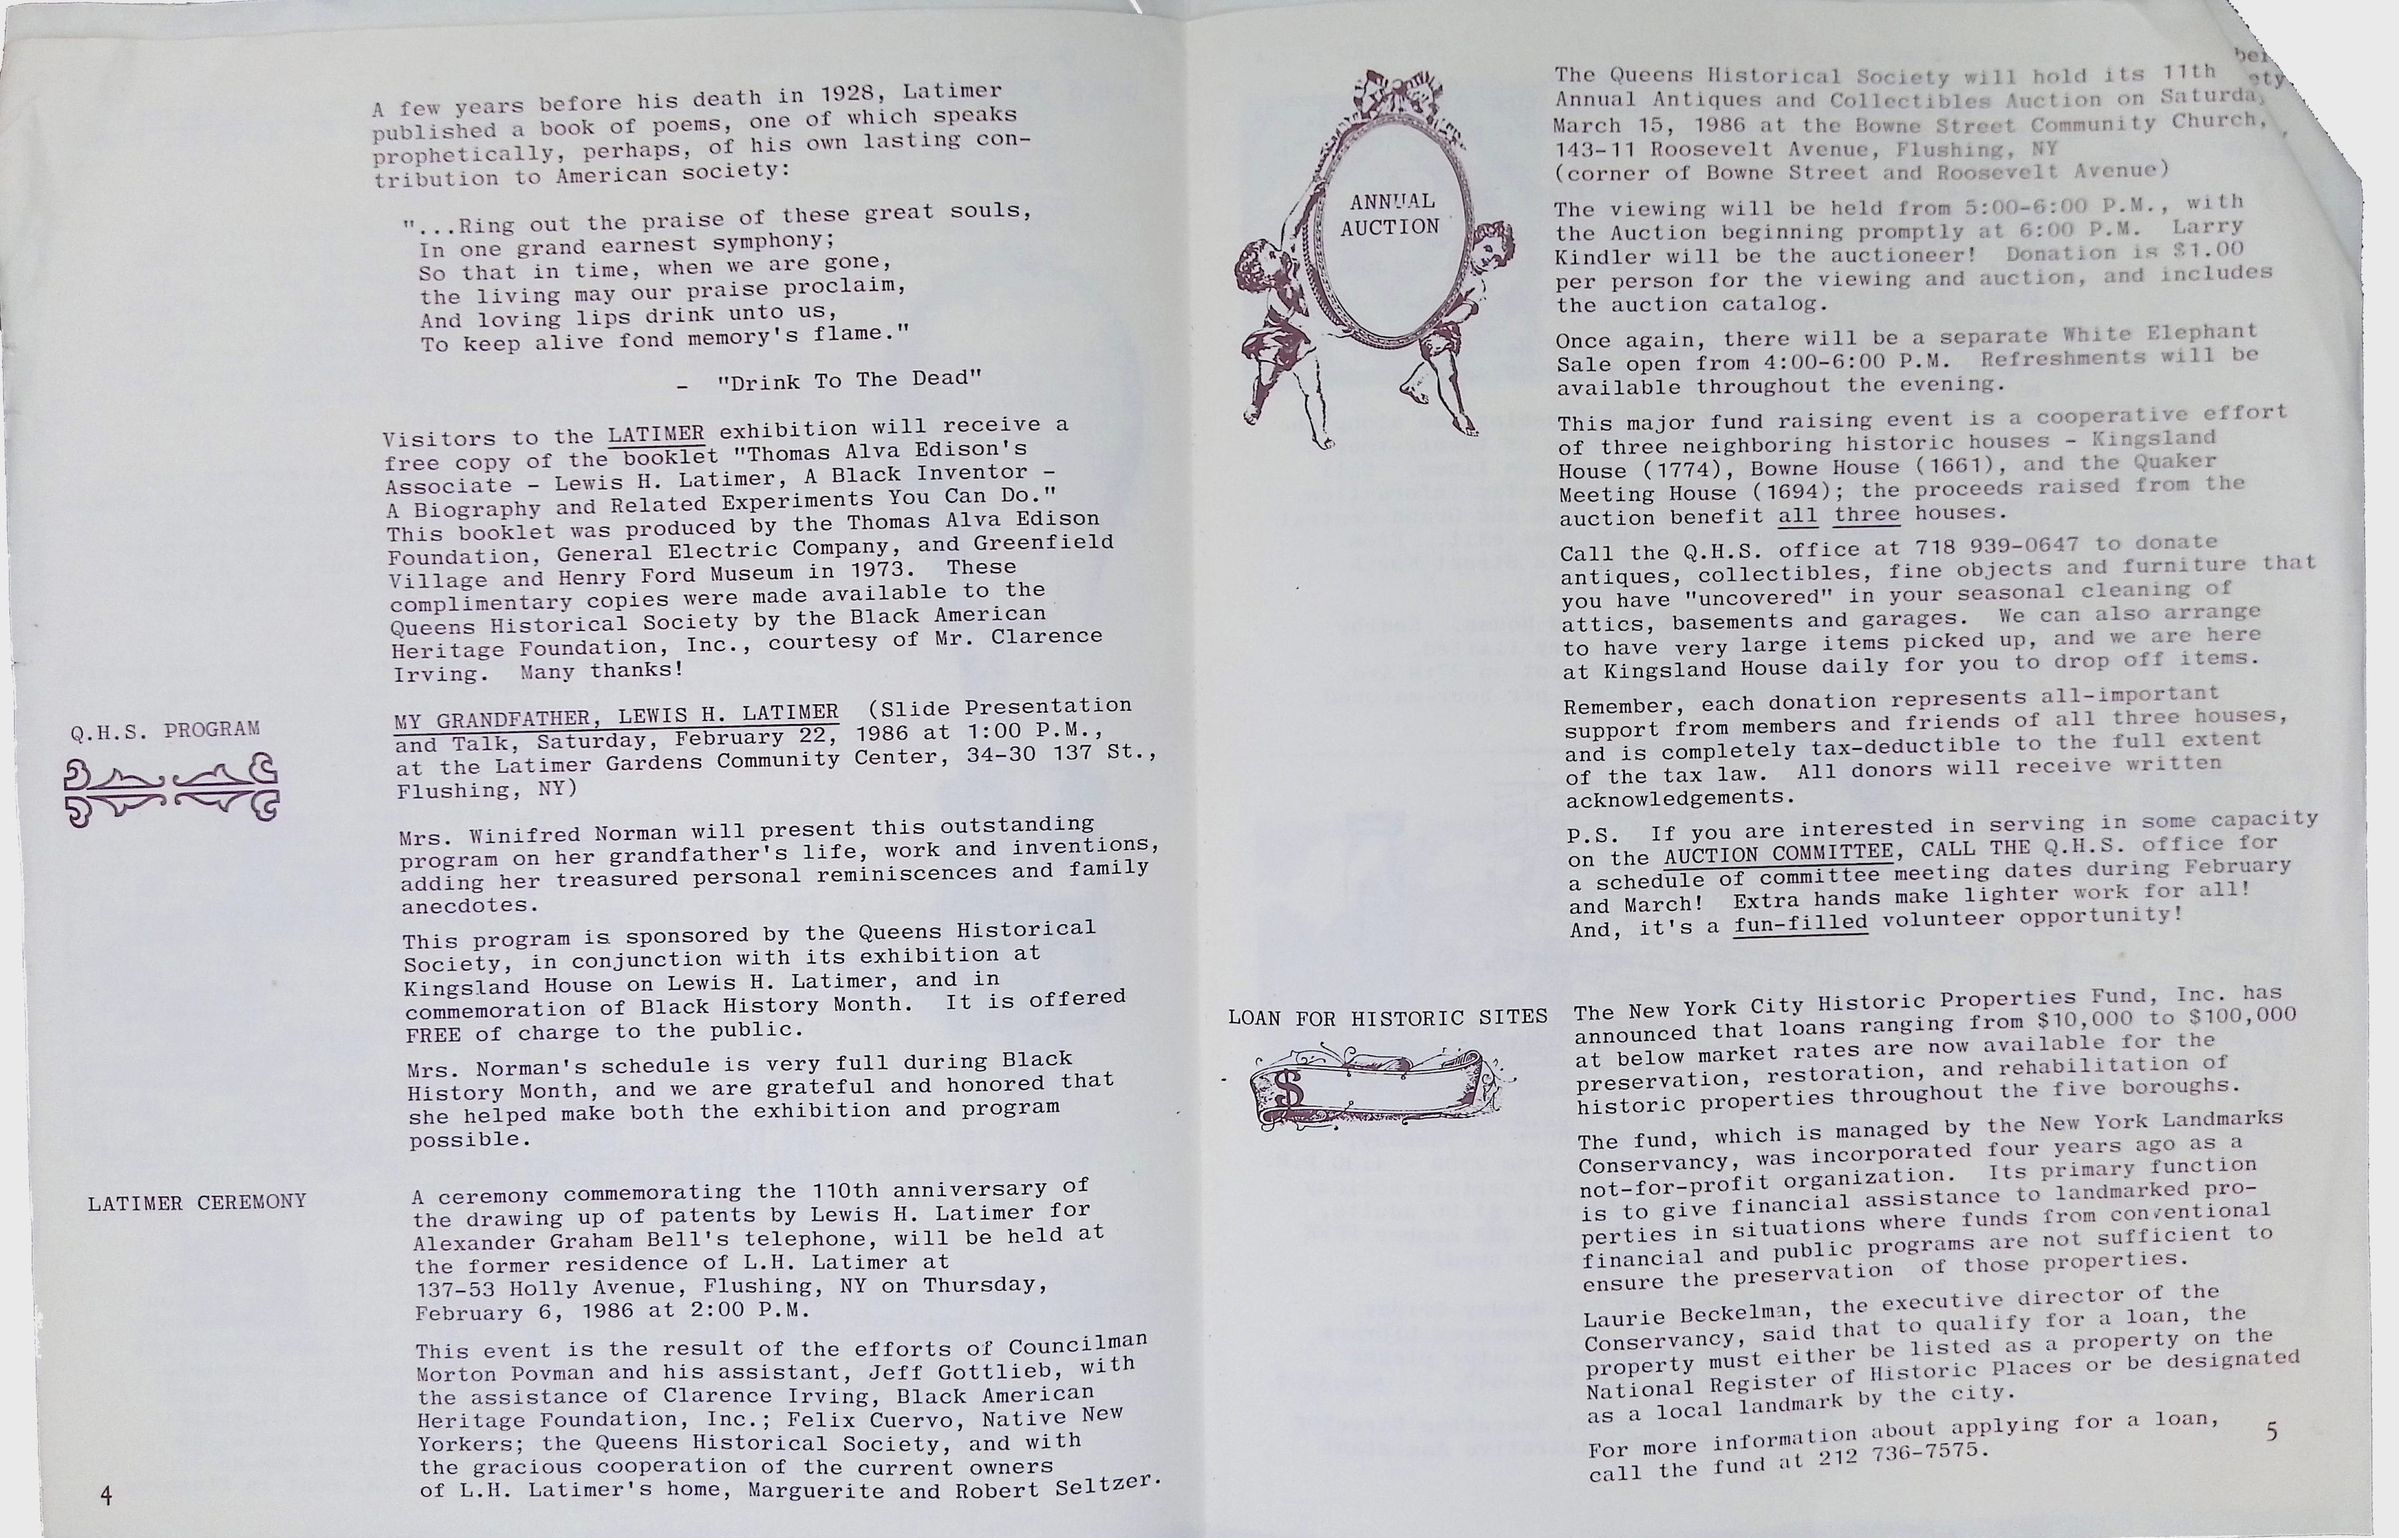 A few years before his death in 1928, Latimer
published a book of poems, one of which speaks
prophetically, perhaps, of his own lasting con-
tribution to American society:
"...Ring out the praise of these great souls,
In one grand earnest symphony;
So that in time, when we are gone,
the living may our praise proclaim,
And loving lips drink unto us,
To keep alive fond memory's flame."
- "Drink To The Dead"
Visitors to the LATIMER exhibition will receive a
free copy of the booklet "Thomas Alva Edison's
Associate - Lewis H. Latimer, A Black Inventor -
A Biography and Related Experiments You Can Do."
This booklet was produced by the Thomas Alva Edison
Foundation, General Electric Company, and Greenfield
Village and Henry Ford Museum in 1973. These
complimentary copies were made available to the
Queens Historical Society by the Black American
Heritage Foundation, Inc., courtesy of Mr. Clarence
Irving. Many thanks!
Q.H.S. PROGRAM
MY GRANDFATHER, LEWIS H. LATIMER (Slide Presentation
and Talk, Saturday, February 22, 1986 at 1:00 P.M.,
at the Latimer Gardens Community Center, 34-30 137 St.,
Flushing, NY)
Mrs. Winifred Norman will present this outstanding
program on her grandfather's life, work and inventions,
adding her treasured personal reminiscences and family
anecdotes.
This program is sponsored by the Queens Historical
Society, in conjunction with its exhibition at
Kingsland House on Lewis H. Latimer, and in
commemoration of Black History Month. It is offered
FREE of charge to the public.
Mrs. Norman's schedule is very full during Black
History Month, and we are grateful and honored that
she helped make both the exhibition and program
possible.
LATIMER CEREMONY
A ceremony commemorating the 110th anniversary of
the drawing up of patents by Lewis H. Latimer for
Alexander Graham Bell's telephone, will be held at
the former residence of L.H. Latimer at
137-53 Holly Avenue, Flushing, NY on Thursday,
February 6, 1986 at 2:00 P.M.
This event is the result of the efforts of Councilman
Morton Povman and his assistant, Jeff Gottlieb, with
the assistance of Clarence Irving, Black American
Heritage Foundation, Inc.; Felix Cuervo, Native New
Yorkers; the Queens Historical Society, and with
the gracious cooperation of the current owners
of L.H. Latimer's home, Marguerite and Robert Seltzer.
4
ANNUAL
AUCTION
The Queens Historical Society will hold its 11th
Annual Antiques and Collectibles Auction on Saturda
March 15, 1986 at the Bowne Street Community Church,
143-11 Roosevelt Avenue, Flushing, NY
(corner of Bowne Street and Roosevelt Avenue)
The viewing will be held from 5:00-6:00 P.M., with
the Auction beginning promptly at 6:00 P.M. Larry
Kindler will be the auctioneer! Donation is $1.00
per person for the viewing and auction, and includes
the auction catalog.
Once again, there will be a separate White Elephant
Sale open from 4:00-6:00 P.M. Refreshments will be
available throughout the evening.
This major fund raising event is a cooperative effort
of three neighboring historic houses - Kingsland
House (1774), Bowne House (1661), and the Quaker
Meeting House (1694); the proceeds raised from the
auction benefit all three houses.
Call the Q.H.S. office at 718 939-0647 to donate
antiques, collectibles, fine objects and furniture that
you have "uncovered" in your seasonal cleaning of
attics, basements and garages. We can also arrange
to have very large items picked up, and we are here
at Kingsland House daily for you to drop off items.
Remember, each donation represents all-important
support from members and friends of all three houses,
and is completely tax-deductible to the full extent
of the tax law. All donors will receive written
acknowledgements.
P.S. If you are interested in serving in some capacity
on the AUCTION COMMITTEE, CALL THE Q.H.S. office for
a schedule of committee meeting dates during February
and March! Extra hands make lighter work for all!
And, it's a fun-filled volunteer opportunity!
LOAN FOR HISTORIC SITES
$
The New York City Historic Properties Fund, Inc. has
announced that loans ranging from $10,000 to $100,000
at below market rates are now available for the
preservation, restoration, and rehabilitation of
historic properties throughout the five boroughs.
The fund, which is managed by the New York Landmarks
Conservancy, was incorporated four years ago as a
not-for-profit organization. Its primary function
is to give financial assistance to landmarked pro-
perties in situations where funds from conventional
financial and public programs are not sufficient to
ensure the preservation of those properties.
Laurie Beckelman, the executive director of the
Conservancy, said that to qualify for a loan, the
property must either be listed as a property on the
National Register of Historic Places or be designated
as a local landmark by the city.
For more information about applying for a loan,
call the fund at 212 736-7575.
5